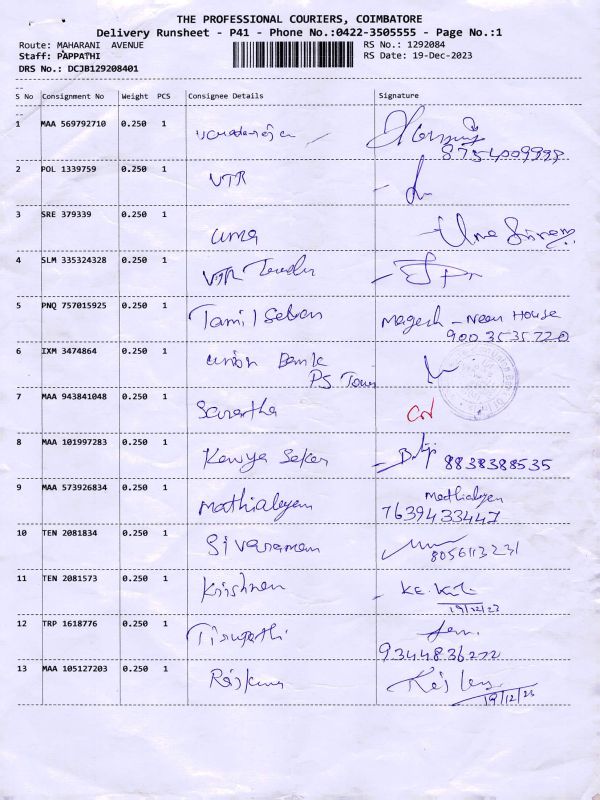 THE PROFESSIONAL COURIERS, COIMBATORE
Delivery Runsheet - P41 - Phone No.:0422-3505555 - Page No.:1
Route: MAHARANI AVENUE
RS No.: 1292084
Staff: PAPPATHI
RS Date: 19-Dec-2023
DRS No.: DCJB129208401
S No Consignment No Weight PCS Consignee Details Signature
1 MAA 569792710 0.250 1
8754009998
2 POL 1339759 0.250 1 VTR
3 SRE 379339 0.250 1 uma Uma
4 SLM 335324328 0.250 1 VTR
5 PNQ 757015925 0.250 1 Tamil Selvan Magesh - Near House
9003535720
6 IXM 3474864 0.250 1 union Bank
PS Town
7 MAA 943841048 0.250 1
8 MAA 101997283 0.250 1 Kavya Sekar 8838388535
9 MAA 573926834 0.250 1 Mathialagan Mathialagan
7639433447
10 TEN 2081834 0.250 1 Sivaraman
8056113231
11 TEN 2081573 0.250 1 Krishnan
19/12/23
12 TRP 1618776 0.250 1 Tirupathi
9344836272
13 MAA 105127203 0.250 1 Rajkumar
19/12/23